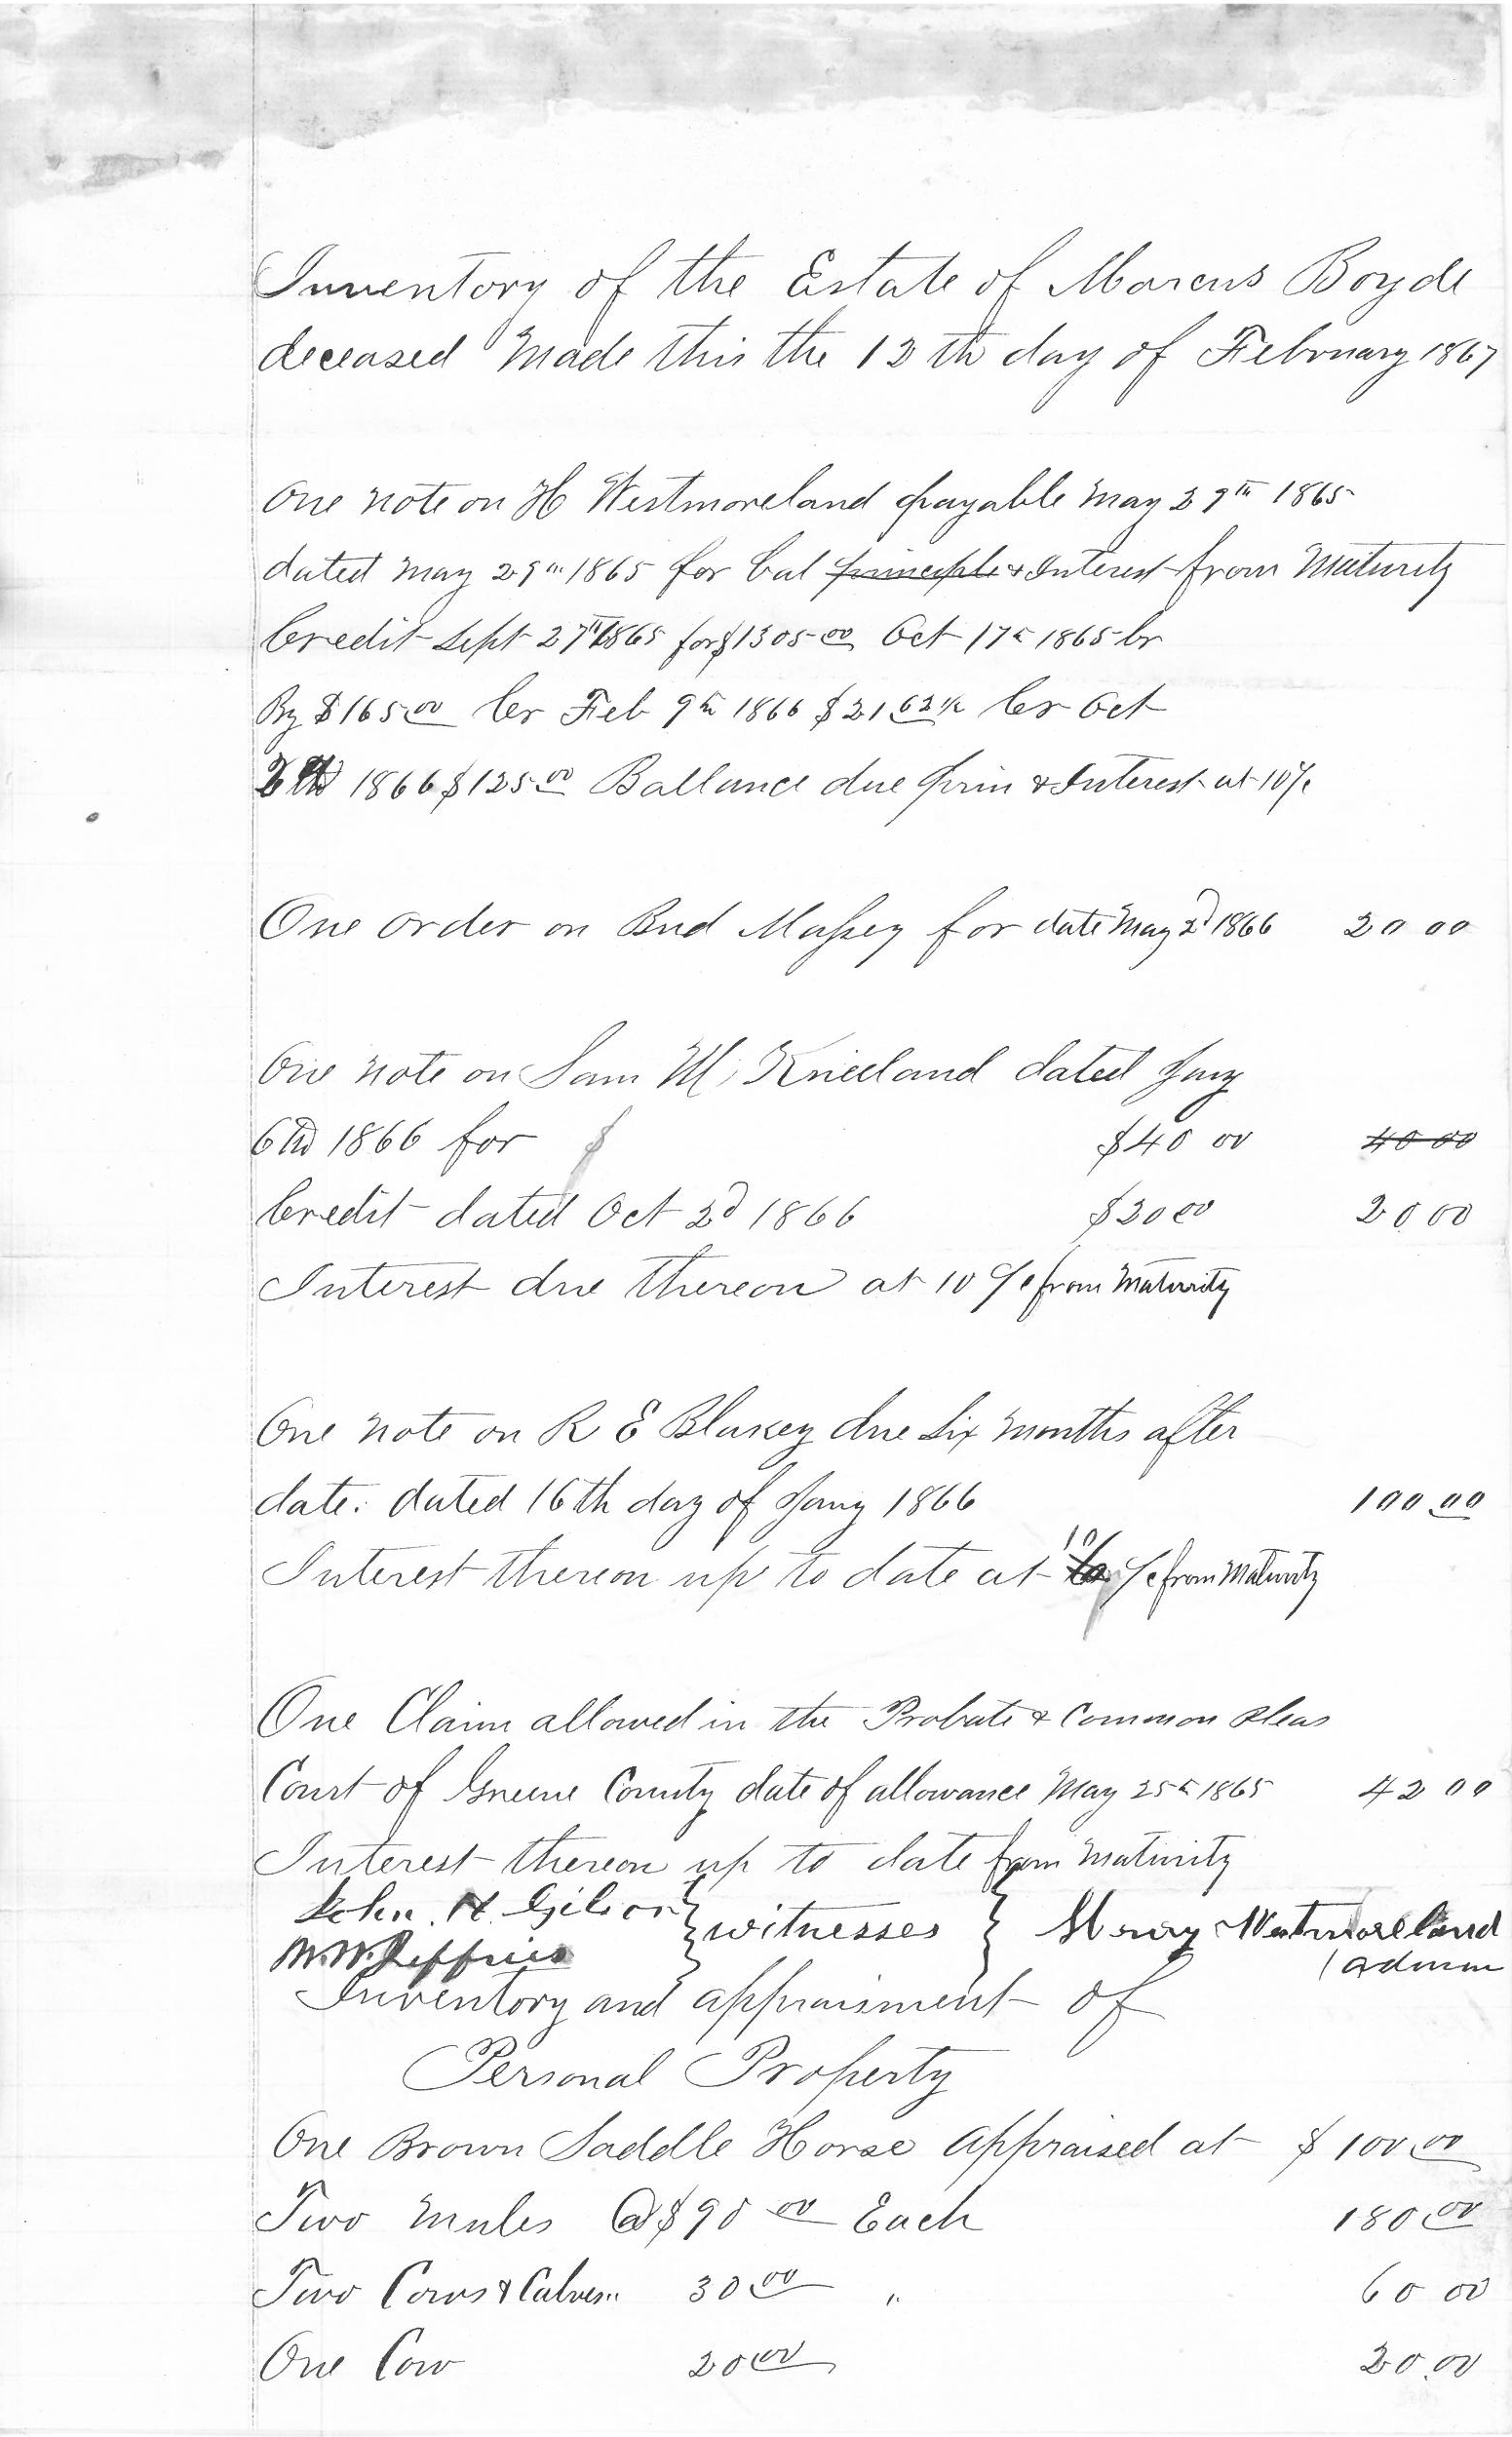 Inventory of the Estate of Marcus Boyde
deceased Made this the 12th day of February 1867
One note on H Westmoreland payable May 29th 1865
dated May 29th 1865 for bal principle & Interest from Maturity
Credit Sept 27th 1865 for $1305.00 Oct 17th 1865 cr
By $165.00 Cr Feb 9th 1866 $21 62 1/2 Cr Oct
1866 $125.00 Ballance due prin & Interest at 10%
One order on Bud Massey for date May 2d 1866 20 00
One note on Sam M, Kneeland dated Jany
6th 1866 for $ $40 00 40 00
Credit dated Oct 2d 1866 $20 00 20 00
Interest due thereon at 10 % from Maturity
One note on R E Blakey due Six Months after
date. dated 16th day of Jany 1866 100.00
Interest thereon up to date at 10 % from Maturity
One Claim allowed in the Probate & Common Pleas
Court of Greene County date of allowance May 25th 1865 42 00
Interest thereon up to date from Maturity
John. H. Gibson } witnesses } Westmoreland
W.W. Jeffries admin
Inventory and appraisment of
Personal Property
One Brown Saddle Horse appraised at $ 100.00
Two Mules @ $90 00 Each 180 00
Two Cows & Calves.. 30 00 " 60 00
One Cow 20 00 20.00